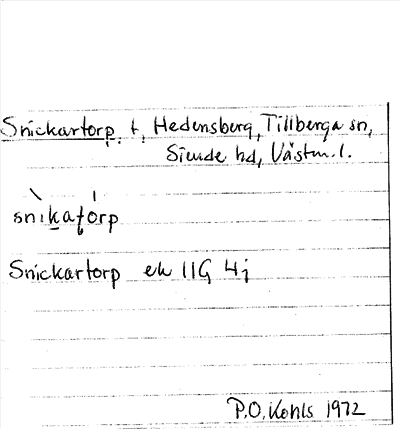 Snickartorp t, Hedensberg, Tillberga sn,
Siende hd, Västm. l.
snikatorp
Snickartorp ek 11G 4j
P.O. Kohls 1972